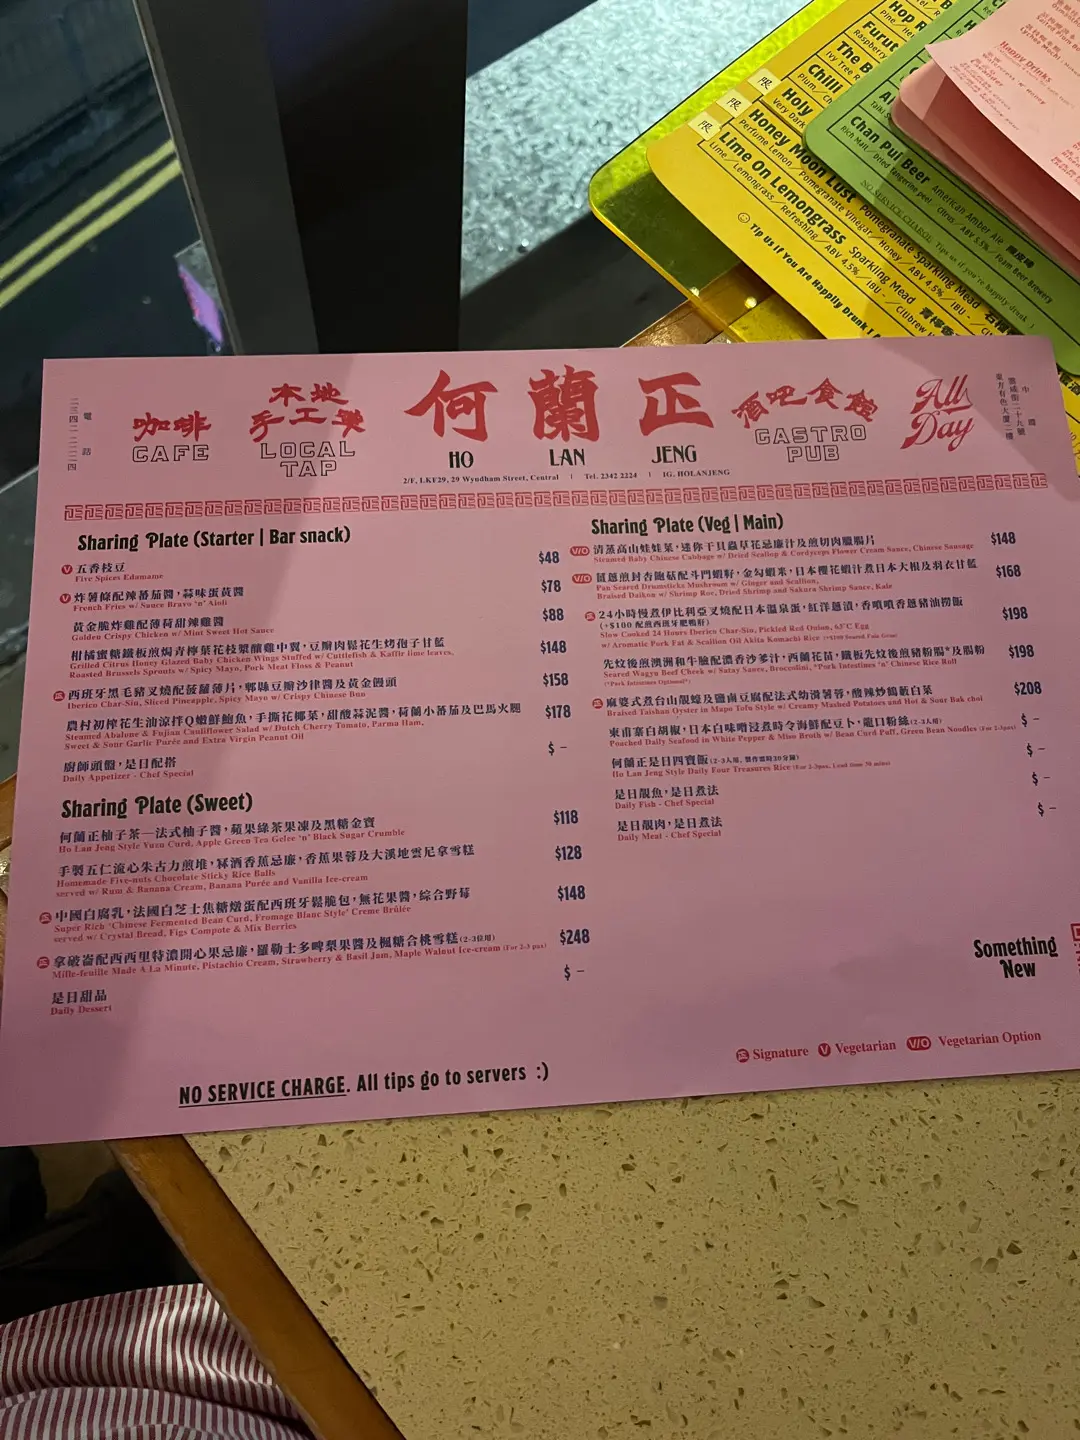 Hop R
Furut
Raspberry
The B
Ivy Tree R
Chilli
限 Holy
Very Dark
限 Honey Moon Lust Pomegranate Sparkling Mead
Perfume Lemon / Pomegranate Vinegar / Honey / ABV 4.5% / IBU -
限 Lime On Lemongrass Sparkling Mead
Lime / Lemongrass / Refreshing / ABV 4.5% / IBU - / Citibrew
Tip Us If You Are Happily Drunk !
Chan Pui Beer American Amber Ale 陳皮啤
Rich Malt / Dried Tangerine peel / Citrus / ABV 5.5% / Foam Beer Brewery
NO SERVICE CHARGE. Tips us if you're happily drunk :)
Happy Drinks
電話
二三四二 二二二四
咖啡
CAFE
本地
手工啤
LOCAL
TAP
何蘭正
HO LAN JENG
2/F, LKF29, 29 Wyndham Street, Central | Tel. 2342 2224 | IG. HOLANJENG
酒吧食館
GASTRO
PUB
All
Day
中環
雲咸街二十九號
東方有色大廈二樓
Sharing Plate (Starter | Bar snack)
V 五香枝豆 $48
Five Spices Edamame
V 炸薯條配辣蕃茄醬，蒜味蛋黃醬 $78
French Fries w/ Sauce Bravo 'n' Aioli
黃金脆炸雞配薄荷甜辣雞醬 $88
Golden Crispy Chicken w/ Mint Sweet Hot Sauce
柑橘蜜糖鐵板煎焗青檸葉花枝漿釀雞中翼，豆瓣肉鬆花生烤孢子甘藍 $148
Grilled Citrus Honey Glazed Baby Chicken Wings Stuffed w/ Cuttlefish & Kaffir lime leaves,
Roasted Brussels Sprouts w/ Spicy Mayo, Pork Meat Floss & Peanut
正 西班牙黑毛豬叉燒配菠蘿薄片，郫縣豆瓣沙律醬及黃金饅頭 $158
Iberico Char-Siu, Sliced Pineapple, Spicy Mayo w/ Crispy Chinese Bun
農村初榨花生油涼拌Q嫩鮮鮑魚，手撕花椰菜，甜酸蒜泥醬，荷蘭小蕃茄及巴馬火腿 $178
Steamed Abalone & Fujian Cauliflower Salad w/ Dutch Cherry Tomato, Parma Ham,
Sweet & Sour Garlic Purée and Extra Virgin Peanut Oil
廚師頭盤，是日配搭 $ -
Daily Appetizer - Chef Special
Sharing Plate (Sweet)
何蘭正柚子茶—法式柚子醬，蘋果綠茶果凍及黑糖金寶 $118
Ho Lan Jeng Style Yuzu Curd, Apple Green Tea Gelee 'n' Black Sugar Crumble
手製五仁流心朱古力煎堆，冧酒香蕉忌廉，香蕉果蓉及大溪地雲尼拿雪糕 $128
Homemade Five-nuts Chocolate Sticky Rice Balls
served w/ Rum & Banana Cream, Banana Purée and Vanilla Ice-cream
正 中國白腐乳，法國白芝士焦糖燉蛋配西班牙鬆脆包，無花果醬，綜合野莓 $148
Super Rich 'Chinese Fermented Bean Curd, Fromage Blanc Style' Creme Brûlée
served w/ Crystal Bread, Figs Compote & Mix Berries
正 拿破崙配西西里特濃開心果忌廉，羅勒士多啤梨果醬及楓糖合桃雪糕 (2-3位用) $248
Mille-feuille Made A La Minute, Pistachio Cream, Strawberry & Basil Jam, Maple Walnut Ice-cream (For 2-3 pax)
是日甜品 $ -
Daily Dessert
Sharing Plate (Veg | Main)
V/O 清蒸高山娃娃菜，迷你干貝蟲草花忌廉汁及煎切肉臘腸片 $148
Steamed Baby Chinese Cabbage w/ Dried Scallop & Cordyceps Flower Cream Sauce, Chinese Sausage
V/O 薑蔥煎封杏鮑菇配斗門蝦籽，金勾蝦米，日本櫻花蝦汁煮日本大根及羽衣甘藍 $168
Pan Seared Drumsticks Mushroom w/ Ginger and Scallion,
Braised Daikon w/ Shrimp Roe, Dried Shrimp and Sakura Shrimp Sauce, Kale
正 24小時慢煮伊比利亞叉燒配日本溫泉蛋，紅洋蔥漬，香噴噴香蔥豬油撈飯 $198
(+$100 配煎西班牙肥鴨肝)
Slow Cooked 24 Hours Iberico Char-Siu, Pickled Red Onion, 65°C Egg
w/ Aromatic Pork Fat & Scallion Oil Akita Komachi Rice (+$100 Seared Foie Gras)
先炆後煎澳洲和牛臉配濃香沙爹汁，西蘭花苗，鐵板先炆後煎豬粉腸*及腸粉 $198
Seared Wagyu Beef Cheek w/ Satay Sauce, Broccolini, *Pork Intestines 'n' Chinese Rice Roll
(*Pork Intestines Optional*)
正 麻婆式煮台山靚蠔及鹽鹵豆腐配法式幼滑薯蓉，酸辣炒鶴藪白菜 $208
Braised Taishan Oyster in Mapo Tofu Style w/ Creamy Mashed Potatoes and Hot & Sour Bak choi
東甫寨白胡椒，日本白味噌浸煮時令海鮮配豆卜，龍口粉絲 (2-3人用) $ -
Poached Daily Seafood in White Pepper & Miso Broth w/ Bean Curd Puff, Green Bean Noodles (For 2-3pax)
何蘭正是日四寶飯 (2-3人用，製作需時30分鐘) $ -
Ho Lan Jeng Style Daily Four Treasures Rice (For 2-3pax, Lead time 30 mins)
是日靚魚，是日煮法 $ -
Daily Fish - Chef Special
是日靚肉，是日煮法 $ -
Daily Meat - Chef Special
Something
New
正 Signature V Vegetarian V/O Vegetarian Option
NO SERVICE CHARGE. All tips go to servers :)